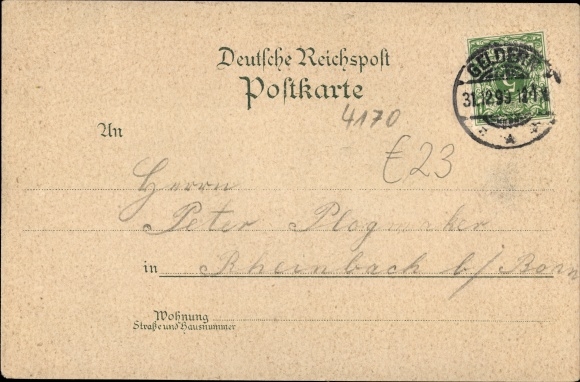 Deutsche Reichspost
Postkarte
GELDERN
31.12.99
4170
An
€23
Herrn
Peter
in Rheinbach b/ Bonn
Wohnung
Straße und Hausnummer